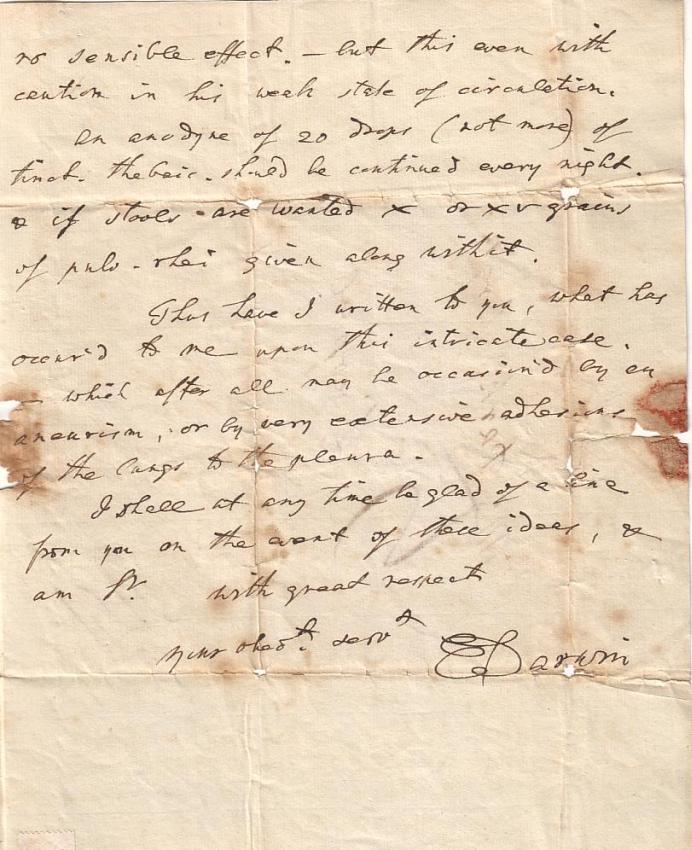 no sensible effect. – but this even with
caution in his weak state of circulation.
an anodyne of 20 drops (not more) of
tinct. thebaic. should be continued every night.
& if stools are wanted x or xv grains
of pulv. rhei given along with it.
Thus have I written to you, what has
occur'd to me upon this intricate case.
– which after all may be occasion'd by an
aneurism, or by very extensive adhesions
of the lungs to the pleura.
I shall at any time be glad of a line
from you on the event of these ideas, &
am Sr. with great respect
your obedt. servt
E Darwin